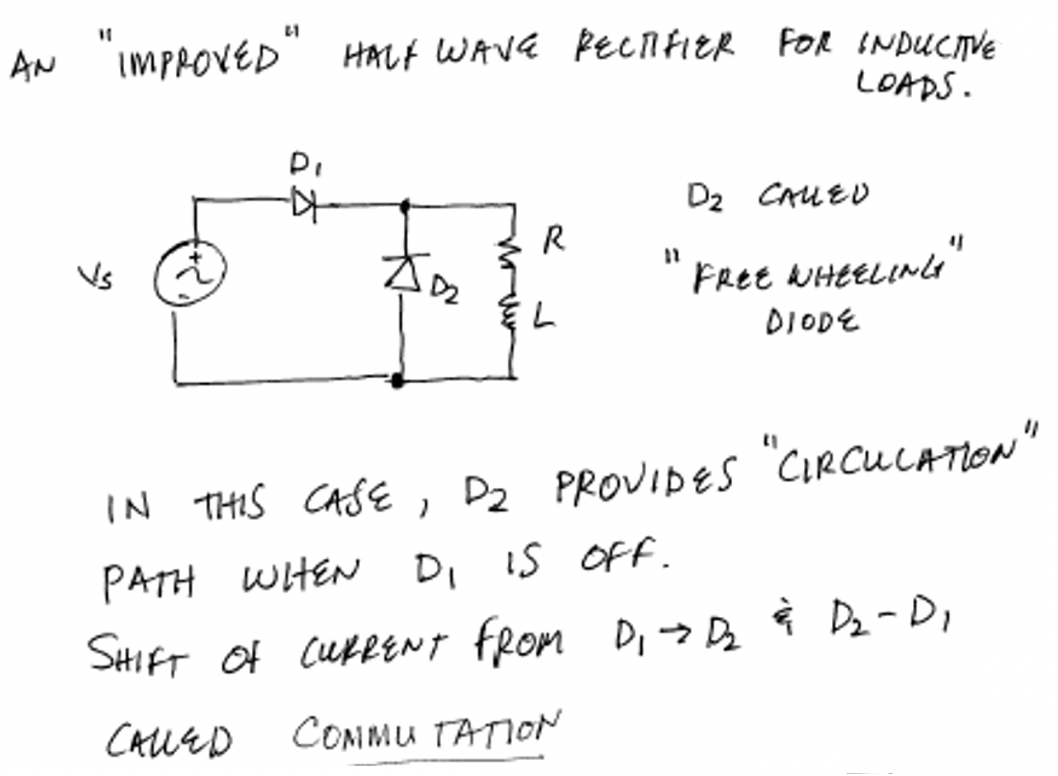 AN "IMPROVED" HALF WAVE RECTIFIER FOR INDUCTIVE
LOADS.
D1
D2 CALLED
R
Vs
+
-
"FREE WHEELING"
D2
L
DIODE
IN THIS CASE, D2 PROVIDES "CIRCULATION"
PATH WHEN D1 IS OFF.
SHIFT OF CURRENT FROM D1 → D2 & D2 - D1
CALLED COMMUTATION